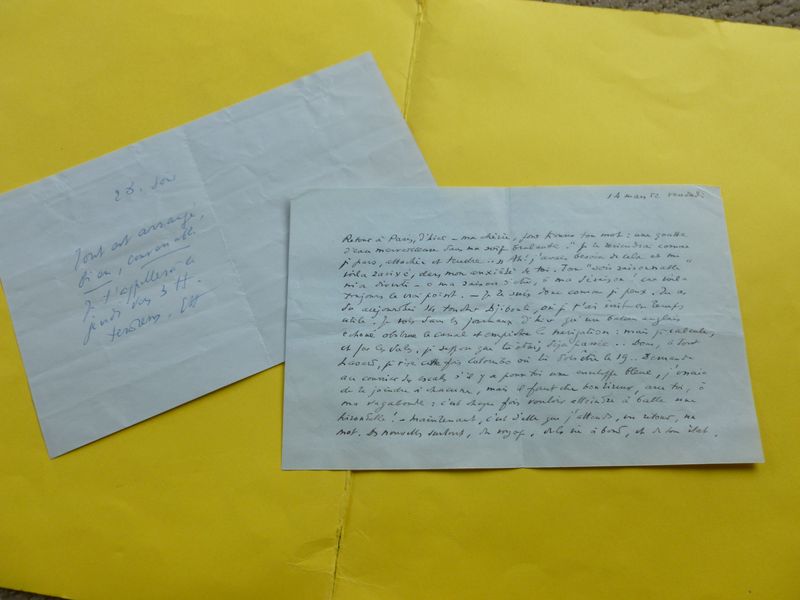 28. Soir
Tout est arrangé,
bien, convenable.
Je t'appellerai
jeudi vers 3 H.
14 mars 52 vendredi
Retour à Paris, d'hier – ma chérie, pour trouver ton mot : une goutte
d'eau merveilleuse dans ma soif brûlante. " Je te reviendrai comme
je pars, attachée et tendre... " Ah! j'avais besoin de cela et me
voilà dans mon anxiété de toi. Ton "sois raisonnable"
m'a diverti – ô ma raison d'être, ô ma déraison! car voilà
toujours le vrai point. – Je te suis donc comme je peux. Tu as,
dû aujourd'hui toucher Djibouti, où je t'ai écrit en temps
utile. Je vois dans les journaux d'hier qu'un bateau anglais
échoué obstrue le canal et empêche la navigation : mais je calcule,
et par les dates, je suppose que tu étais déjà passée... Donc, à tout
hasard, je vise cette fois Colombo où tu dois être le 19.. Demande
au courrier des escales s'il y a pour toi une enveloppe bleue, j'essaie
de te joindre à chacune, mais il faut du bonheur, avec toi, ô
ma vagabonde : c'est chaque fois vouloir atteindre à balle une
hirondelle! – Maintenant, c'est d'elle que j'attends, un retour, un
mot. Des nouvelles surtout, du voyage, de la vie à bord, et de ton état.